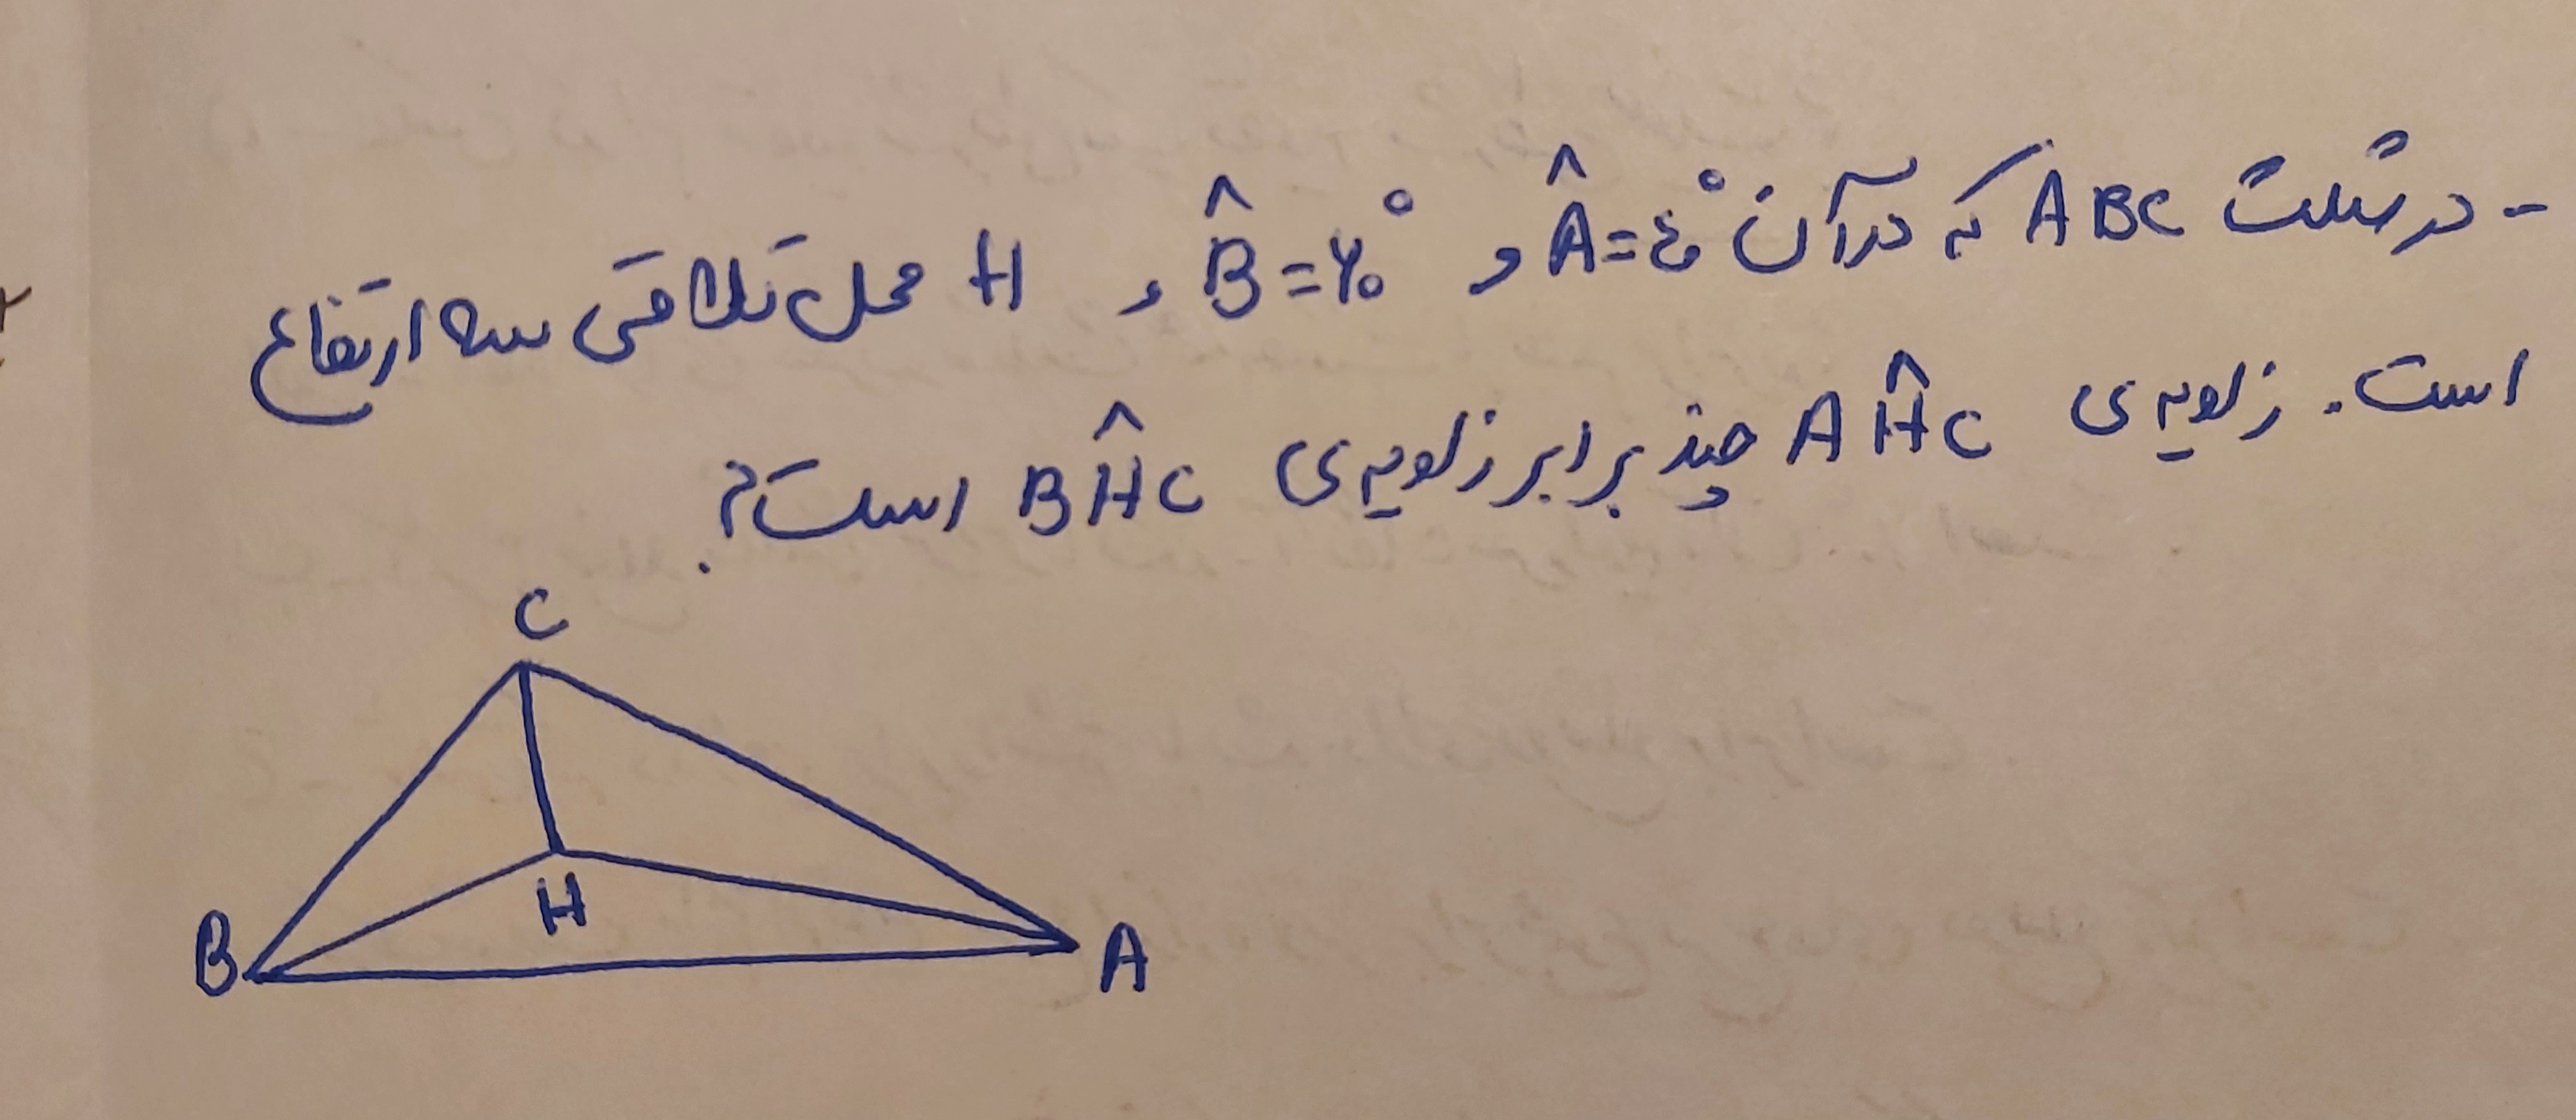 - در مثلث ABC که در آن Â=۴۰° و B̂=۶۰° و H محل تلاقی سه ارتفاع
است. زاویه‌ی AĤC چند برابر زاویه‌ی BĤC است؟
C
H
B
A